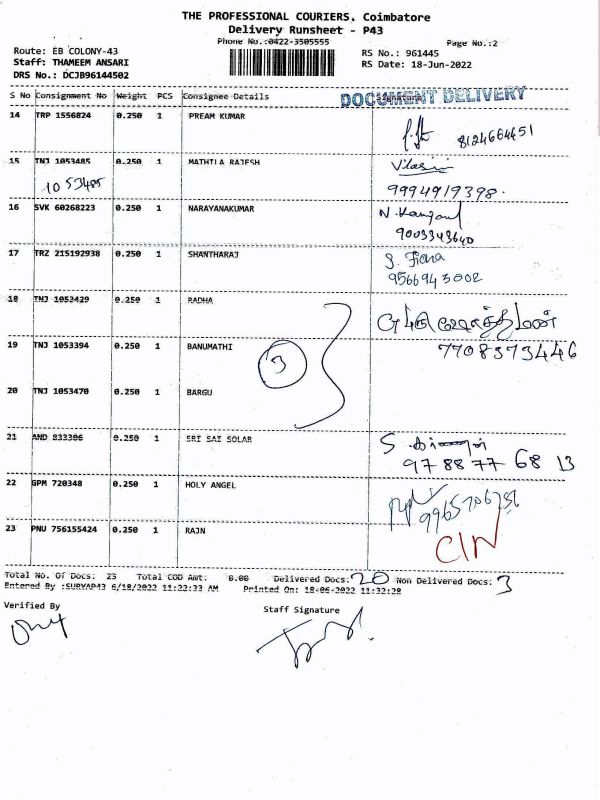 THE PROFESSIONAL COURIERS. Coimbatore
Delivery Runsheet - P43
Phone No.:0422-3505555
Page No.:2
Route: EB COLONY-43
RS No.: 961445
Staff: THAMEEM ANSARI
RS Date: 18-Jun-2022
DRS No.: DCJB96144502
DOCUMENT DELIVERY
S No Consignment No Weight PCS Consignee Details Signature
14 TRP 1556824 0.250 1 PREAM KUMAR
8124664451
15 TNJ 1053485 0.250 1 MATHILA RAJESH
1053485
9994919398.
16 SVK 60268223 0.250 1 NARAYANAKUMAR
9003343640
17 TRZ 215192938 0.250 1 SHANTHARAJ
9566945002
18 TNJ 1053429 0.250 1 RADHA
19 TNJ 1053394 0.250 1 BANUMATHI 7708373446
3
20 TNJ 1053470 0.250 1 BARGU
21 AND 833306 0.250 1 SRI SAI SOLAR
97 88 77 68 13
22 GPM 720348 0.250 1 HOLY ANGEL
23 PNU 756155424 0.250 1 RAJN
Total No. Of Docs: 23 Total COD Amt: 0.00 Delivered Docs: 20 Non Delivered Docs: 3
Entered By :SURYAP43 6/18/2022 11:22:33 AM Printed On: 18-06-2022 11:32:28
Verified By
Staff Signature